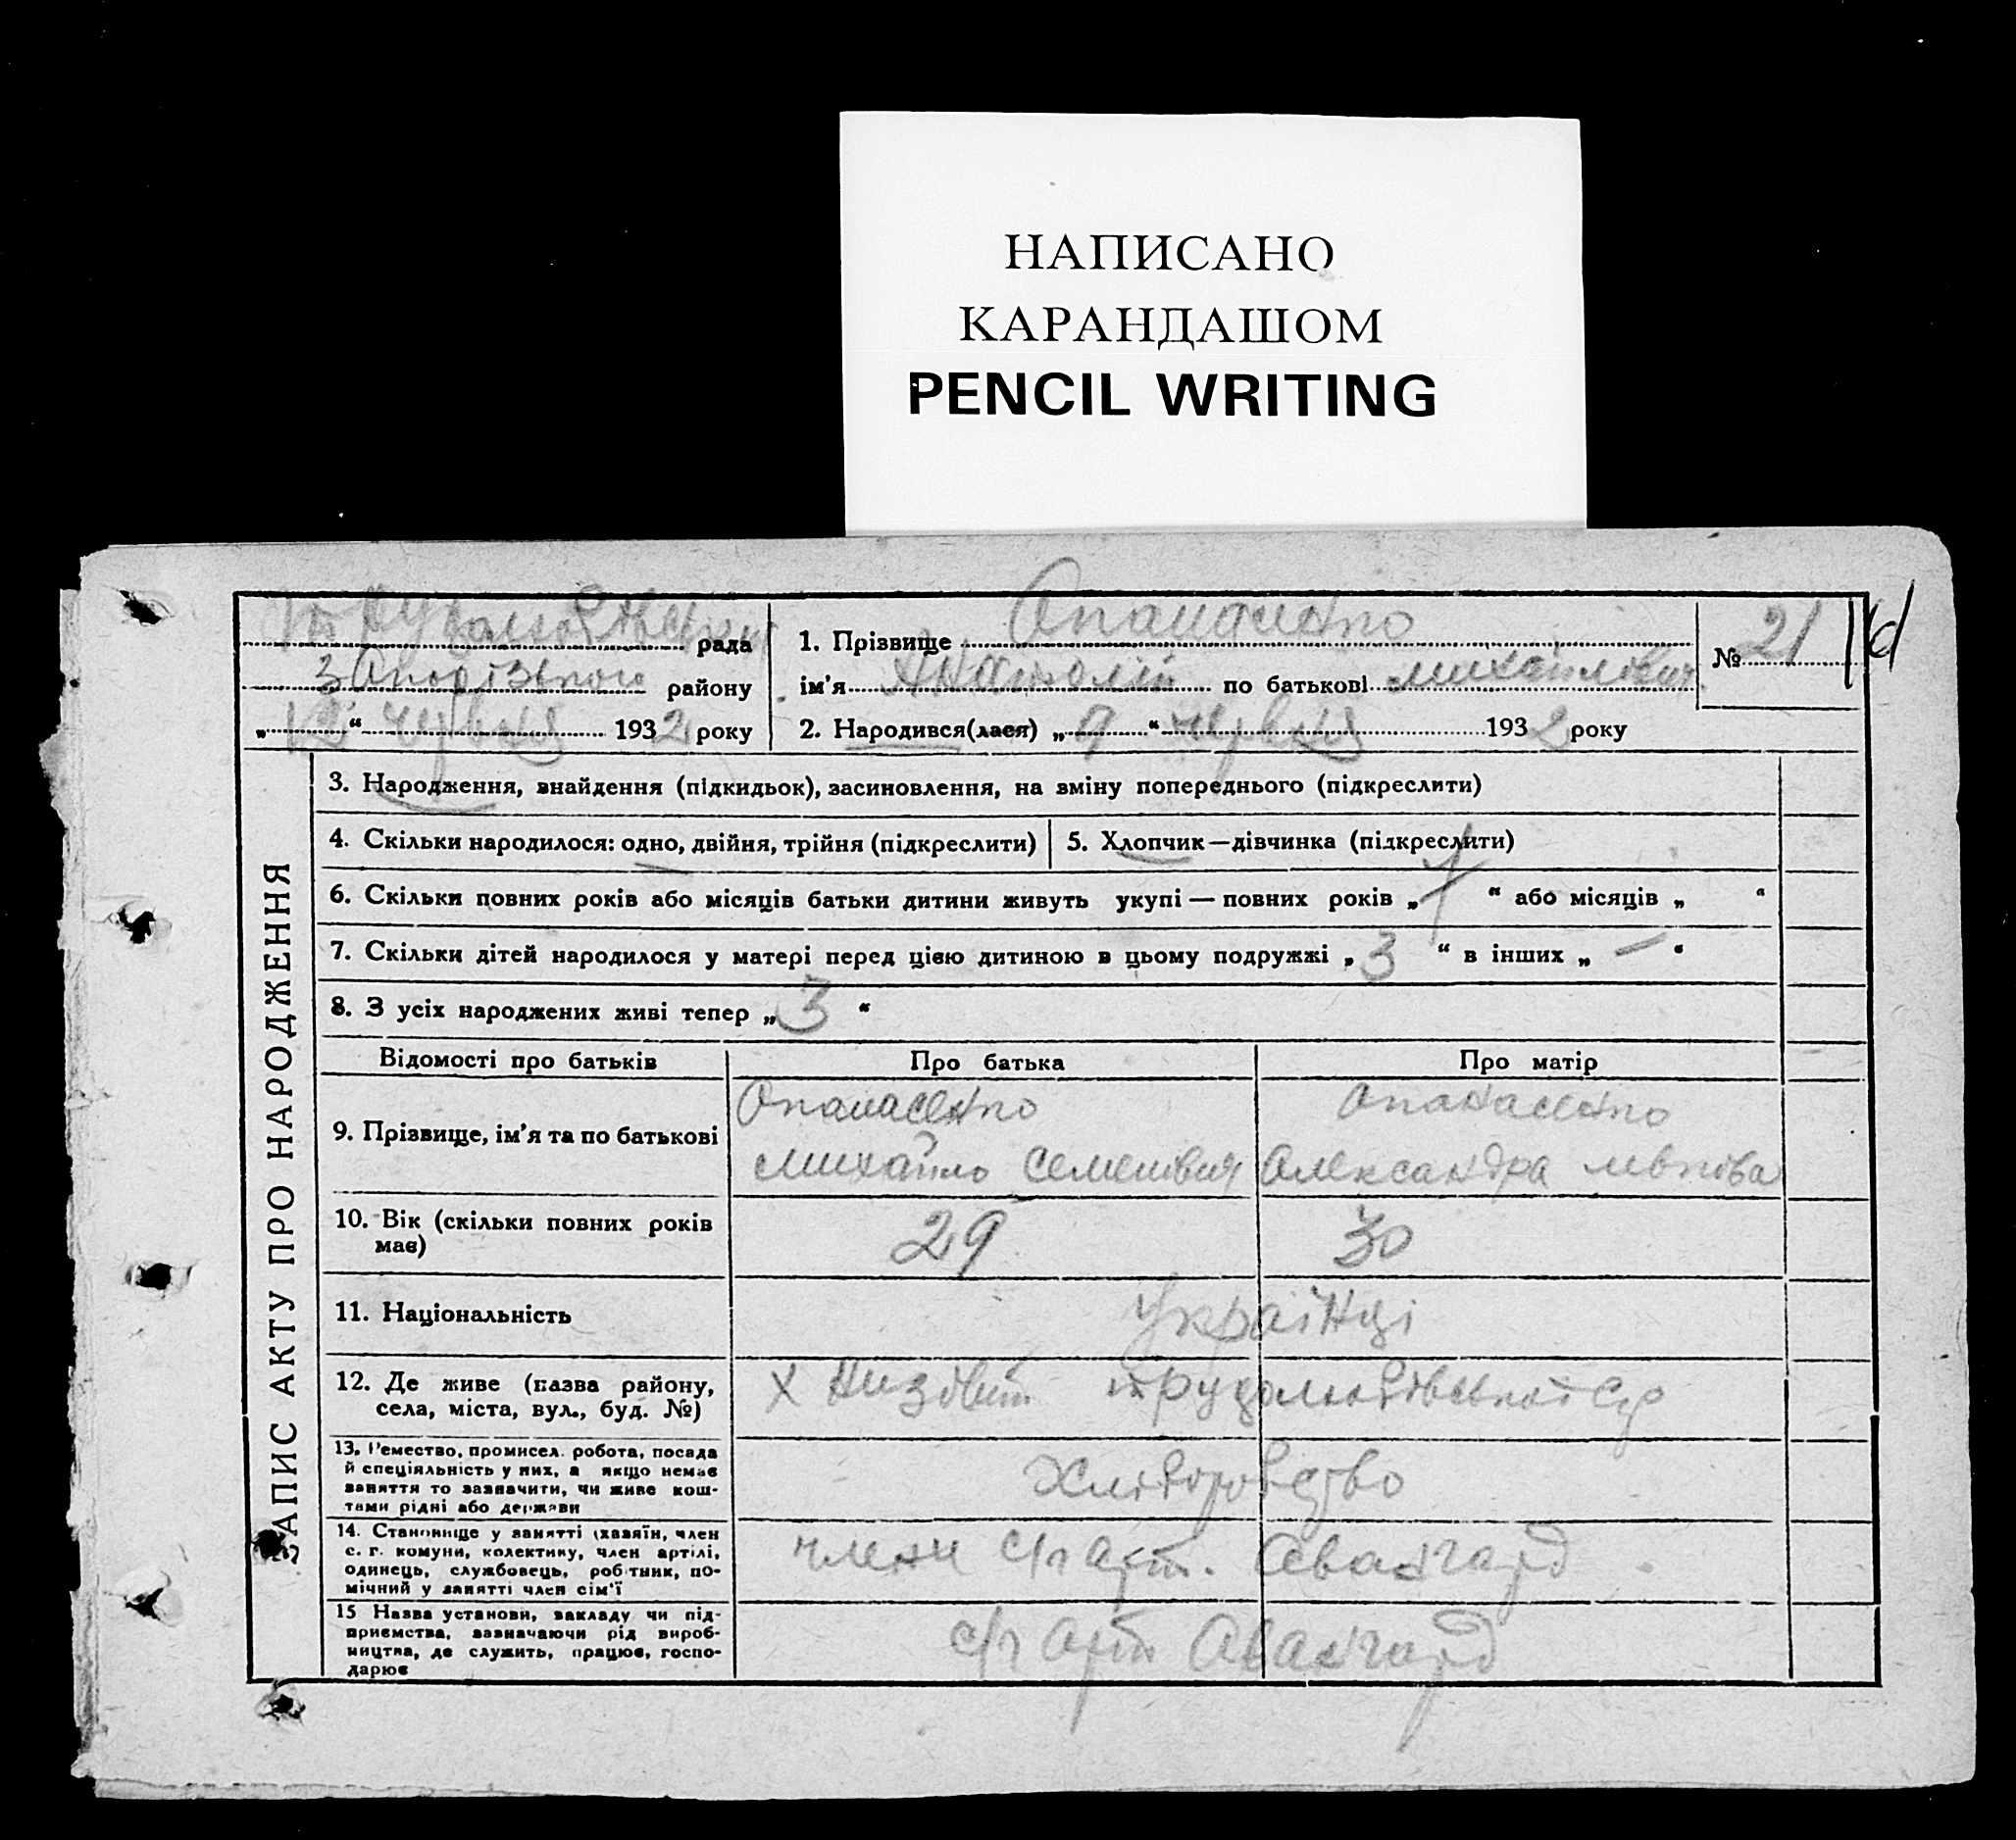 НАПИСАНО
КАРАНДАШОМ
PENCIL WRITING
Трудолюбівська рада
Запорізького району
„12“ червня 1932 року
1. Прізвище Опанасенко
ім’я Анатолій по батькові Михайлович
2. Народився(лася) „9“ червня 1932 року
№ 21
ЗАПИС АКТУ ПРО НАРОДЖЕННЯ
3. Народження, знайдення (підкидьок), засиновлення, на зміну попереднього (підкреслити)
4. Скільки народилося: одно, двійня, трійня (підкреслити)
5. Хлопчик—дівчинка (підкреслити)
6. Скільки повних років або місяців батьки дитини живуть укупі — повних років „ “ або місяців „ “
7. Скільки дітей народилося у матері перед цією дитиною в цьому подружжі „3“ в інших „—“
8. З усіх народжених живі тепер „3“
Відомості про батьків
Про батька
Про матір
9. Прізвище, ім’я та по батькові
Опанасенко
Михайло Семенович
Опанасенко
Олександра
10. Вік (скільки повних років
має)
29
30
11. Національність
Українці
12. Де живе (назва району,
села, міста, вул., буд. №)
Х Трудолюбівської с/р
13. Ремество, промисел. робота, посада
й спеціяльність у них, а якщо немає
заняття то зазначити, чи живе кош-
тами рідні або держави
Хліборобство
14. Становище у занятті (хазяїн, член
с. г. комуни, колективу, член артілі,
одинець, службовець, робітник, по-
мічний у занятті член сім’ї
члени с/г арт. Авангард
15 Назва установи, закладу чи під-
приємства, зазначаючи рід вироб-
ництва, де служить, працює, госпо-
дарює
с/г арт Авангард